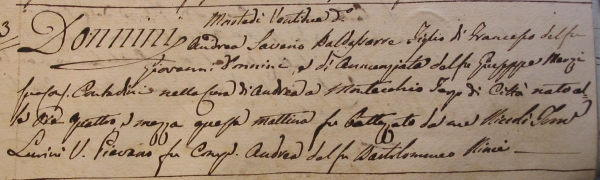 3
Martedi Ventidue do
Donnini Andrea Saverio Baldassarre Figlio di Francesco del fu
Giovanni Donnini, e di Annunziata del fu Giuseppe Marzi
Contadini nella Cura di Andrea a Montecchio nato al
quattro, e mezza questa mattina fu battezzato da me
V. Pievano fu Comp. Andrea del fu Bartolommeo